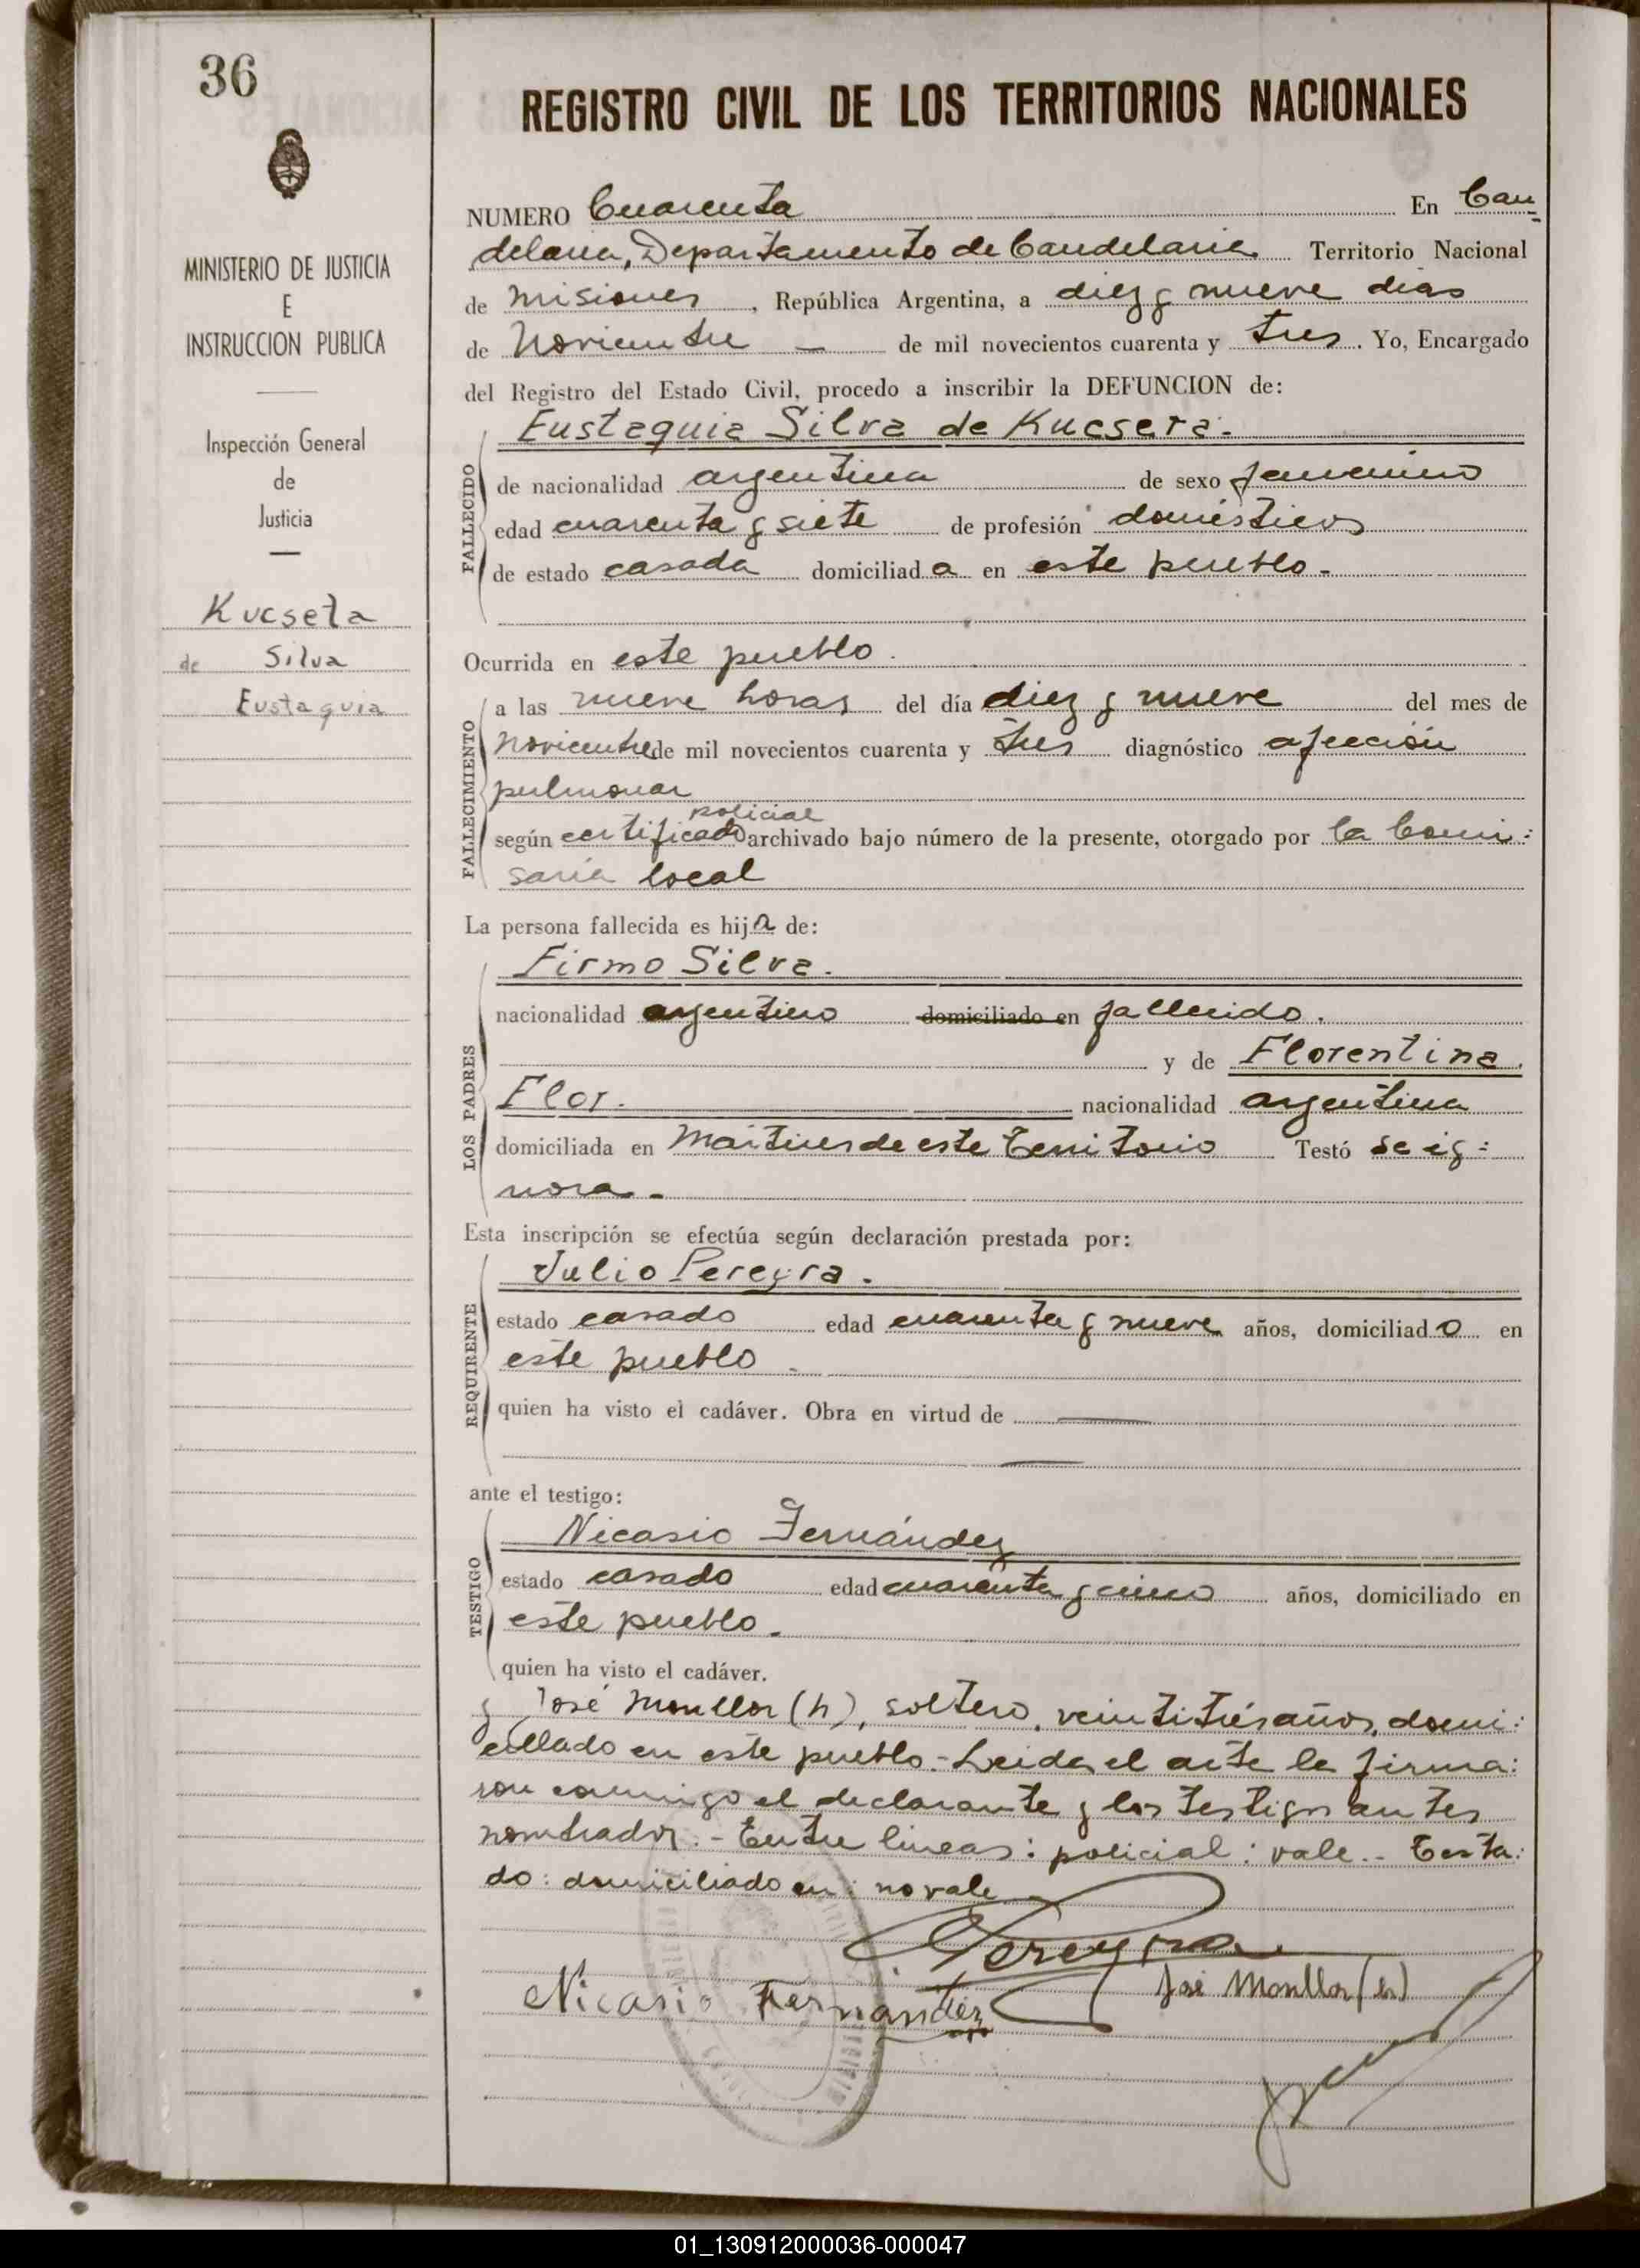 36
MINISTERIO DE JUSTICIA
E
INSTRUCCION PUBLICA
Inspección General
de
Justicia
Kucsera
de Silva
Eustaquia
REGISTRO CIVIL DE LOS TERRITORIOS NACIONALES
NUMERO Cuarenta En Can-
delaria, Departamento de Candelaria Territorio Nacional
de Misiones, República Argentina, a diez y nueve dias
de Noviembre — de mil novecientos cuarenta y tres. Yo, Encargado
del Registro del Estado Civil, procedo a inscribir la DEFUNCION de:
Eustaquia Silva de Kucsera.
FALLECIDO
de nacionalidad argentina de sexo femenino
edad cuarenta y siete de profesión domésticos
de estado casada domiciliada en este pueblo.-
Ocurrida en este pueblo.
FALLECIMIENTO
a las nueve horas del día diez y nueve del mes de
Noviembre de mil novecientos cuarenta y tres diagnóstico afección
pulmonar
policial
según certificado archivado bajo número de la presente, otorgado por la Comi:
saria local
La persona fallecida es hija de:
LOS PADRES
Firmo Silva.
nacionalidad argentino domiciliado en fallecido.
y de Florentina
Flor. nacionalidad argentina
domiciliada en Martires de este Territorio Testó se ig:
nora.-
Esta inscripción se efectúa según declaración prestada por:
REQUIRENTE
Julio Pereyra.
estado casado edad cuarenta y nueve años, domiciliado en
este pueblo.-
quien ha visto el cadáver. Obra en virtud de —
—
ante el testigo:
TESTIGO
Nicasio Fernández
estado casado edad cuarenta y cinco años, domiciliado en
este pueblo.
quien ha visto el cadáver.
y José Monllor (h), soltero, veintitrés años, domi:
cillado en este pueblo.- Leida el acta la firma:
ron conmigo el declarante y los testigos antes
nombrados.- Entre lineas: policial: vale.- Testa:
do: domiciliado en: no vale
Pereyra
Nicasio Fernandez José Monllor (h)
01_130912000036-000047